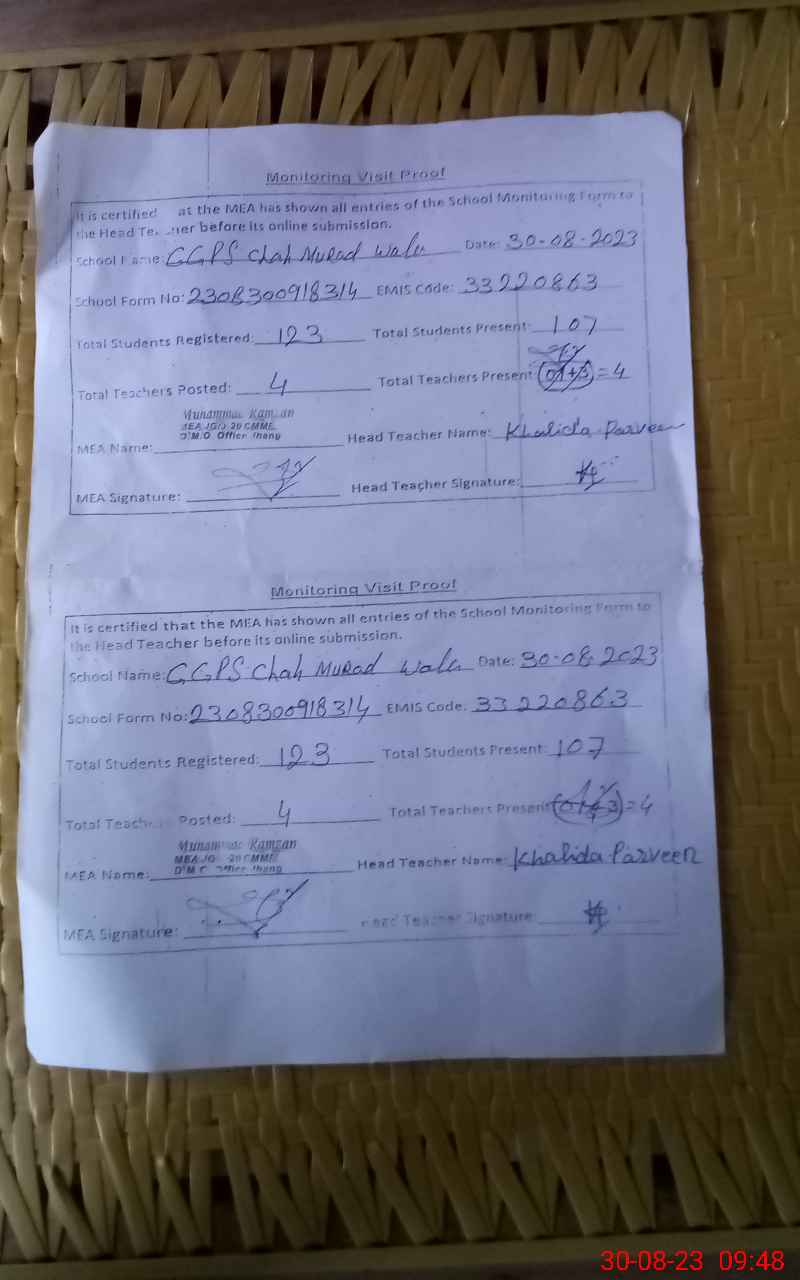 Monitoring Visit Proof
It is certified at the MEA has shown all entries of the School Monitoring Form to
the Head Teacher before its online submission.
School Name: GGPS Chah Murad Wala Date: 30-08-2023
School Form No: 2308300918314 EMIS Code: 33220863
Total Students Registered: 123 Total Students Present: 107
Total Teachers Posted: 4 Total Teachers Present: (01+3) = 4
Muhammad Ramzan
MEA
D.M.O. Office Jhang
MEA Name: Head Teacher Name: Khalida Parveen
MEA Signature: Head Teacher Signature:
Monitoring Visit Proof
It is certified that the MEA has shown all entries of the School Monitoring Form to
the Head Teacher before its online submission.
School Name: GGPS Chah Murad Wala Date: 30-08-2023
School Form No: 2308300918314 EMIS Code: 33220863
Total Students Registered: 123 Total Students Present: 107
Total Teachers Posted: 4 Total Teachers Present: (01+3) = 4
Muhammad Ramzan
MEA
D.M.O. Office Jhang
MEA Name: Head Teacher Name: Khalida Parveen
MEA Signature: Head Teacher Signature:
30-08-23 09:48